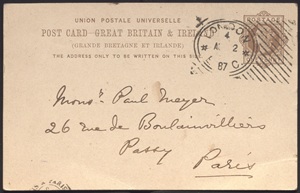 UNION POSTALE UNIVERSELLE
POST CARD - GREAT BRITAIN & IREL
(GRANDE BRETAGNE ET IRLANDE)
THE ADDRESS ONLY TO BE WRITTEN ON THIS
LONDON
4
2
87
Monsr. Paul Meyer
26 Rue de Boulainvilliers
Passy
Paris
PARIS